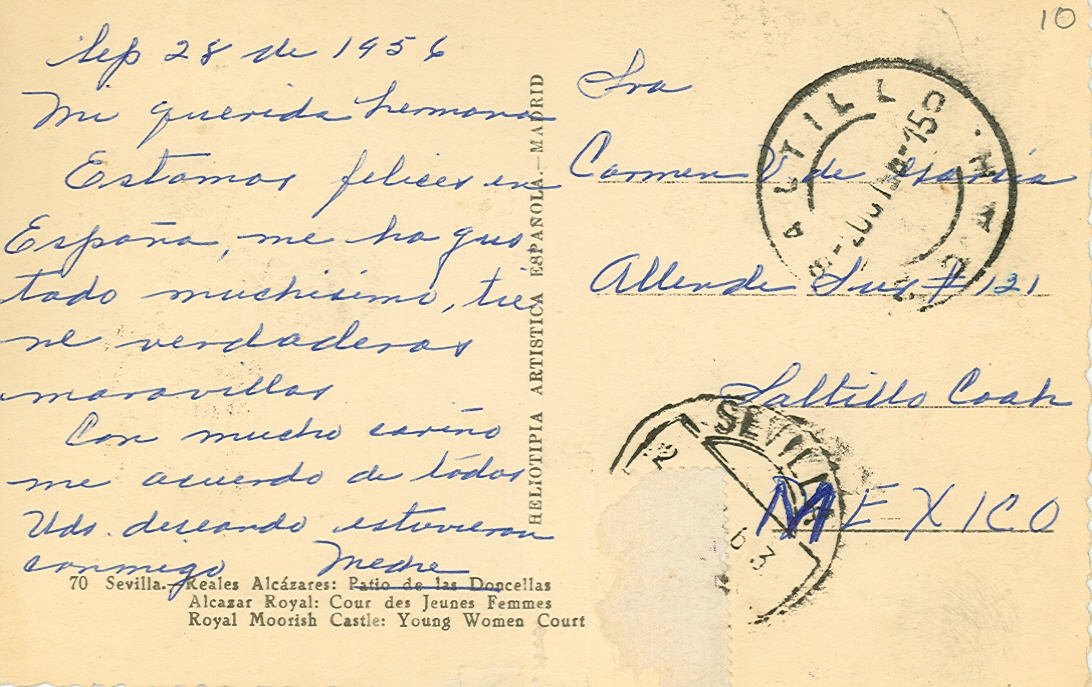 10
Sep 28 de 1956
Mi querida hermana
Estamos felices en
España, me ha gus
tado muchisimo, tie
ne verdaderas
maravillas
Con mucho cariño
me acuerdo de todos
Uds. deseando estuvieran
conmigo
HELIOTIPIA ARTISTICA ESPAÑOLA.—MADRID
Sra
Carmen V de
Allende Sur # 121
Saltillo Coah
MEXICO
SALTILLO
SEVILLA
70 Sevilla.—Reales Alcázares: Patio de las Doncellas
Alcazar Royal: Cour des Jeunes Femmes
Royal Moorish Castle: Young Women Court